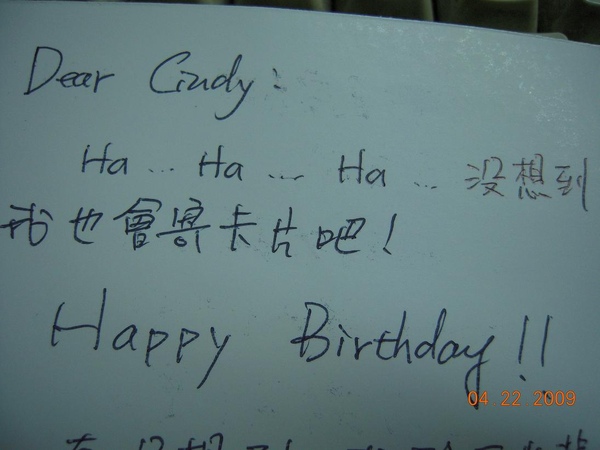 Dear Cindy:
Ha... Ha... Ha... 沒想到
我也會寄卡片吧!
Happy Birthday!!
04 22 2009